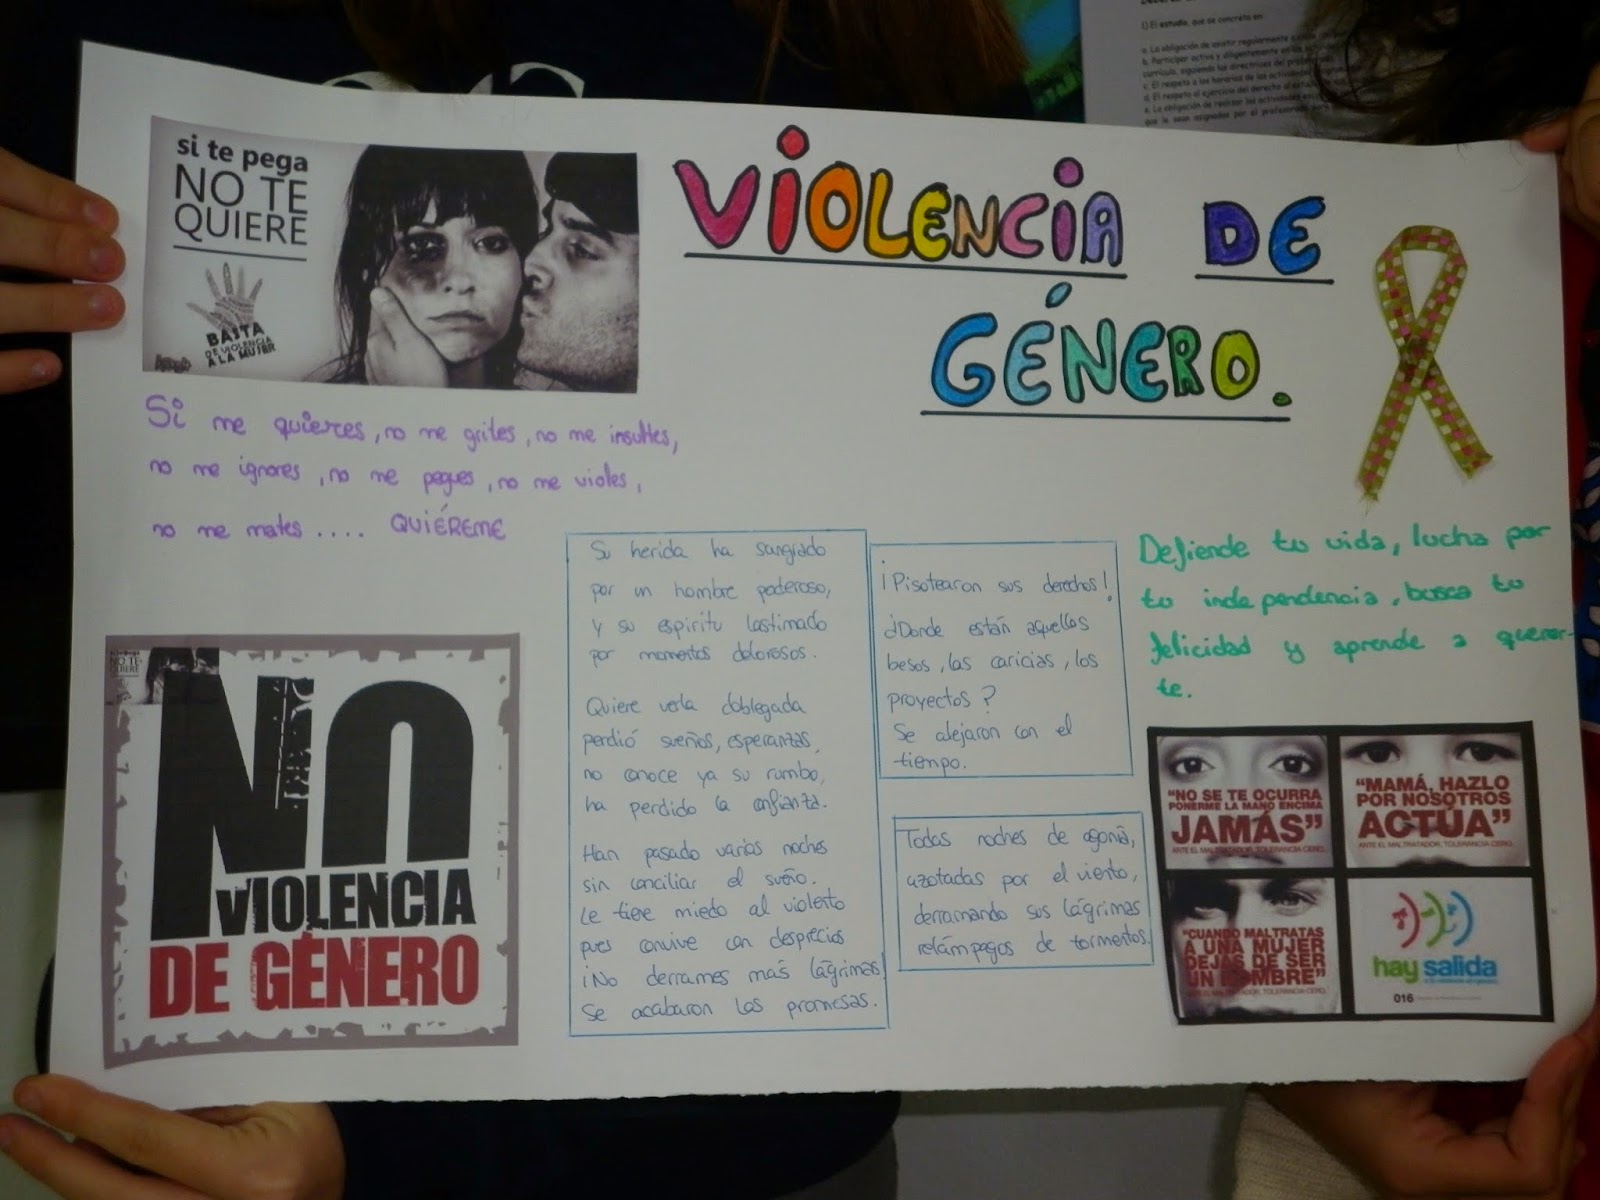 1) El estudio, que se concreta en:
si te pega
NO TE
QUIERE
BASTA
DE VIOLENCIA
A LA MUJER
VIOLENCIA DE
GÉNERO.
Si me quieres, no me grites, no me insultes,
no me ignores, no me pegues, no me violes,
no me mates .... QUIÉREME
NO
VIOLENCIA
DE GÉNERO
Su herida ha sangrado
por un hombre poderoso,
y su espiritu lastimado
por momentos dolorosos.
Quiere verla doblegada
perdió sueños, esperanzas,
no conoce ya su rumbo,
ha perdido la confianza.
Han pasado varias noches
sin conciliar el sueño.
Le tiene miedo al violento
pues convive con desprecios
¡No derrames más lágrimas!
Se acabaron las promesas.
¡Pisotearon sus derechos!
¿Donde están aquellos
besos, las caricias, los
proyectos?
Se alejaron con el
tiempo.
Todas noches de agonía,
azotadas por el viento,
derramando sus lágrimas
relámpagos de tormentos.
Defiende tu vida, lucha por
tu independencia, busca tu
felicidad y aprende a querer-
te.
"NO SE TE OCURRA
PONERME LA MANO ENCIMA
JAMÁS"
ANTE EL MALTRATADOR, TOLERANCIA CERO.
"MAMÁ, HAZLO
POR NOSOTROS
ACTÚA"
ANTE EL MALTRATADOR, TOLERANCIA CERO.
"CUANDO MALTRATAS
A UNA MUJER
DEJAS DE SER
UN HOMBRE"
ANTE EL MALTRATADOR, TOLERANCIA CERO.
hay salida
016